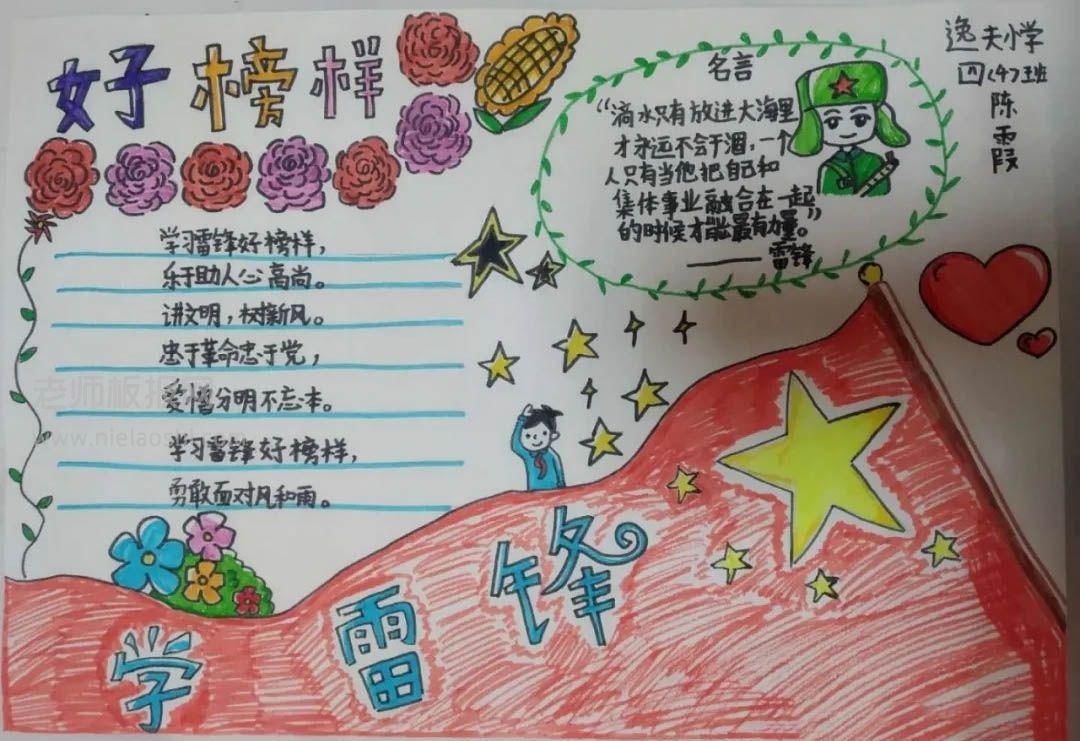 好榜样
名言
“滴水只有放进大海里
才永远不会干涸，一个
人只有当他把自己和
集体事业融合在一起
的时候才能最有力量。”
——雷锋
逸夫小学
四（4）班
陈雨霞
学习雷锋好榜样，
乐于助人心高尚。
讲文明，树新风。
忠于革命忠于党，
爱憎分明不忘本。
学习雷锋好榜样，
勇敢面对风和雨。
老师板报网
www.nielaoshi.com
学雷锋